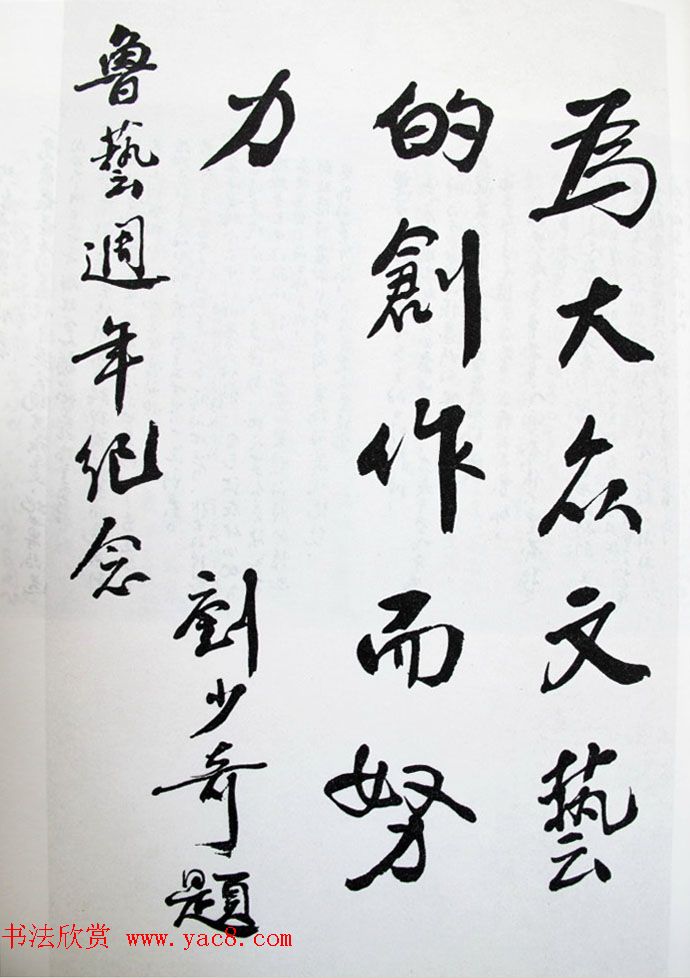 為大众文藝
的創作而努
力
劉少奇題
魯藝週年紀念
书法欣赏 www.yac8.com